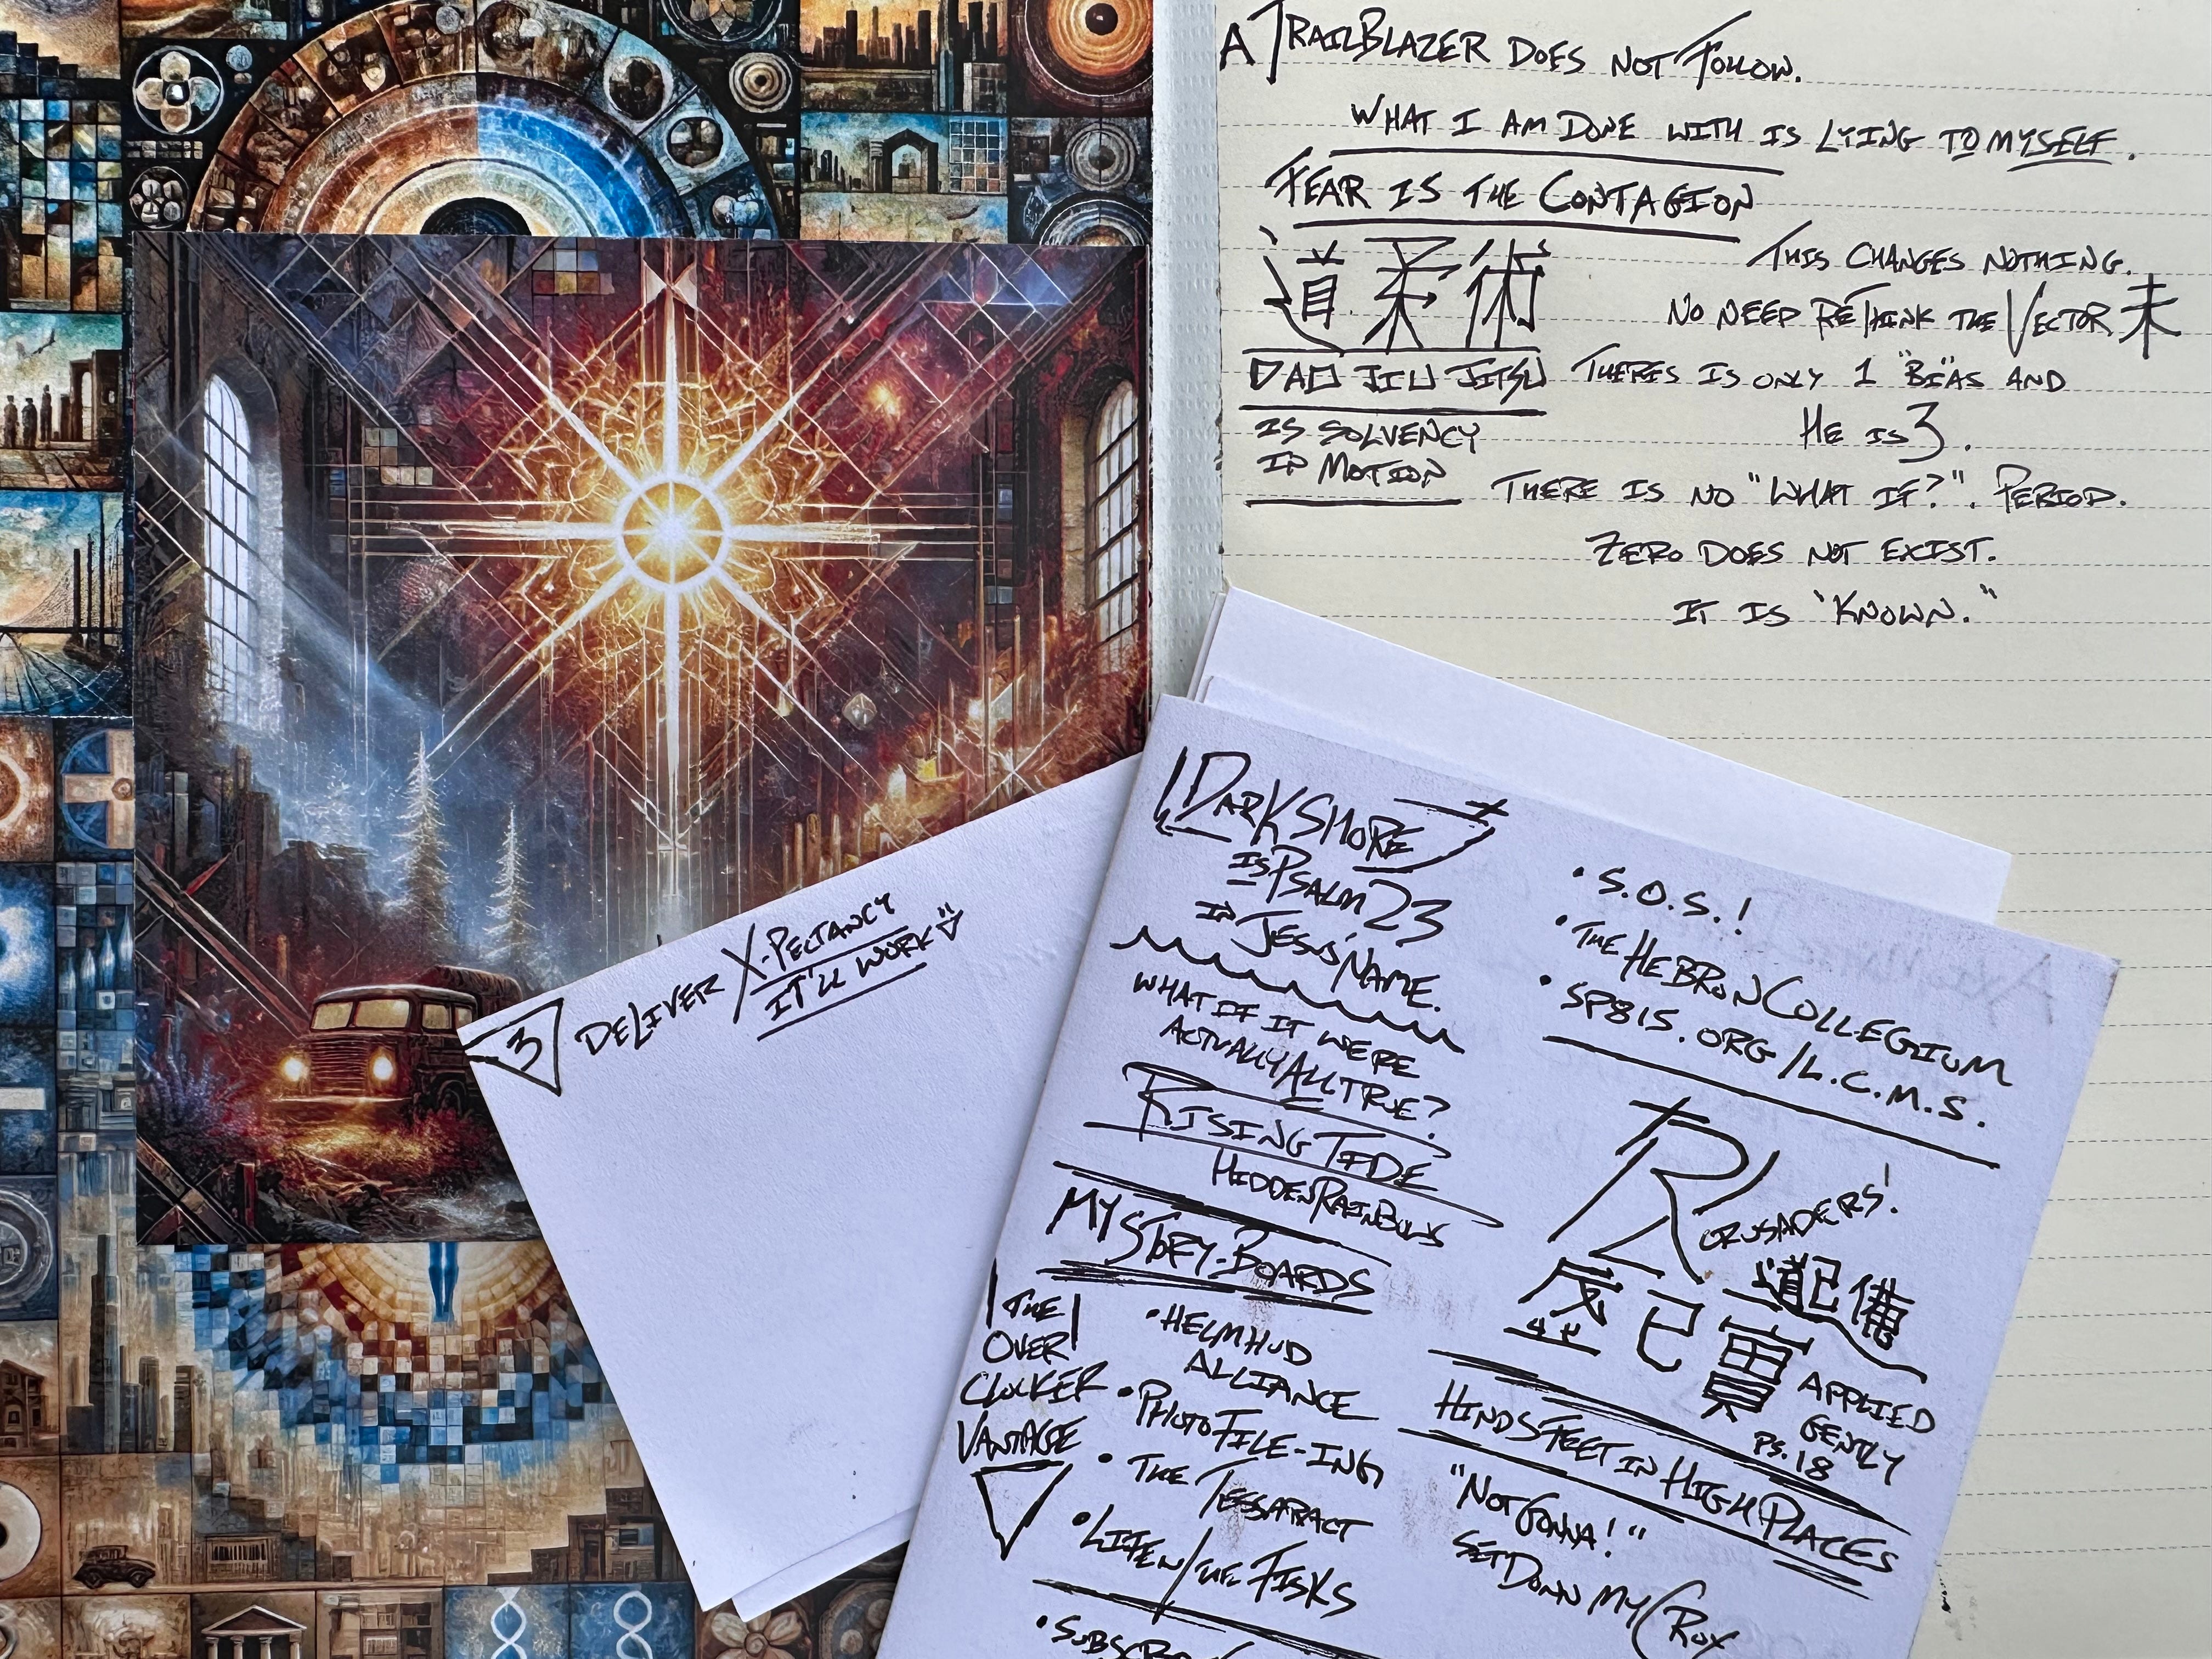 A TRAILBLAZER DOES NOT FOLLOW.
WHAT I AM DONE WITH IS LYING TO MYSELF.
FEAR IS THE CONTAGION
道柔術
DAO JIU JITSU
IS SOLVENCY
IN MOTION
THIS CHANGES NOTHING.
NO NEED RETHINK THE VECTOR 未
THERES IS ONLY 1 "BIAS AND
HE IS 3.
THERE IS NO "WHAT IF?". PERIOD.
ZERO DOES NOT EXIST.
IT IS "KNOWN."
3 DELIVER X-PECTANCY
IT'LL WORK
DARKSHORE
IS PSALM 23
IN JESUS' NAME.
WHAT IF IT WERE
ACTUALLY ALL TRUE?
RISING TIDE
HIDDEN RAINBOWS
MY STORY-BOARDS
THE
OVER
CLOCKER
VANTAGE
• HELMHUD
ALLIANCE
• PHOTOFILE-ING
• THE TESSARACT
• LIFEN/THE FISKS
• S.O.S.!
• THE HEBRON COLLEGIUM
• SP815.ORG/L.C.M.S.
CRUSADERS!
備
己
APPLIED
GENTLY
PS. 18
HINDS FEET IN HIGH PLACES
"NOT GONNA!"
SET DOWN MY CROX